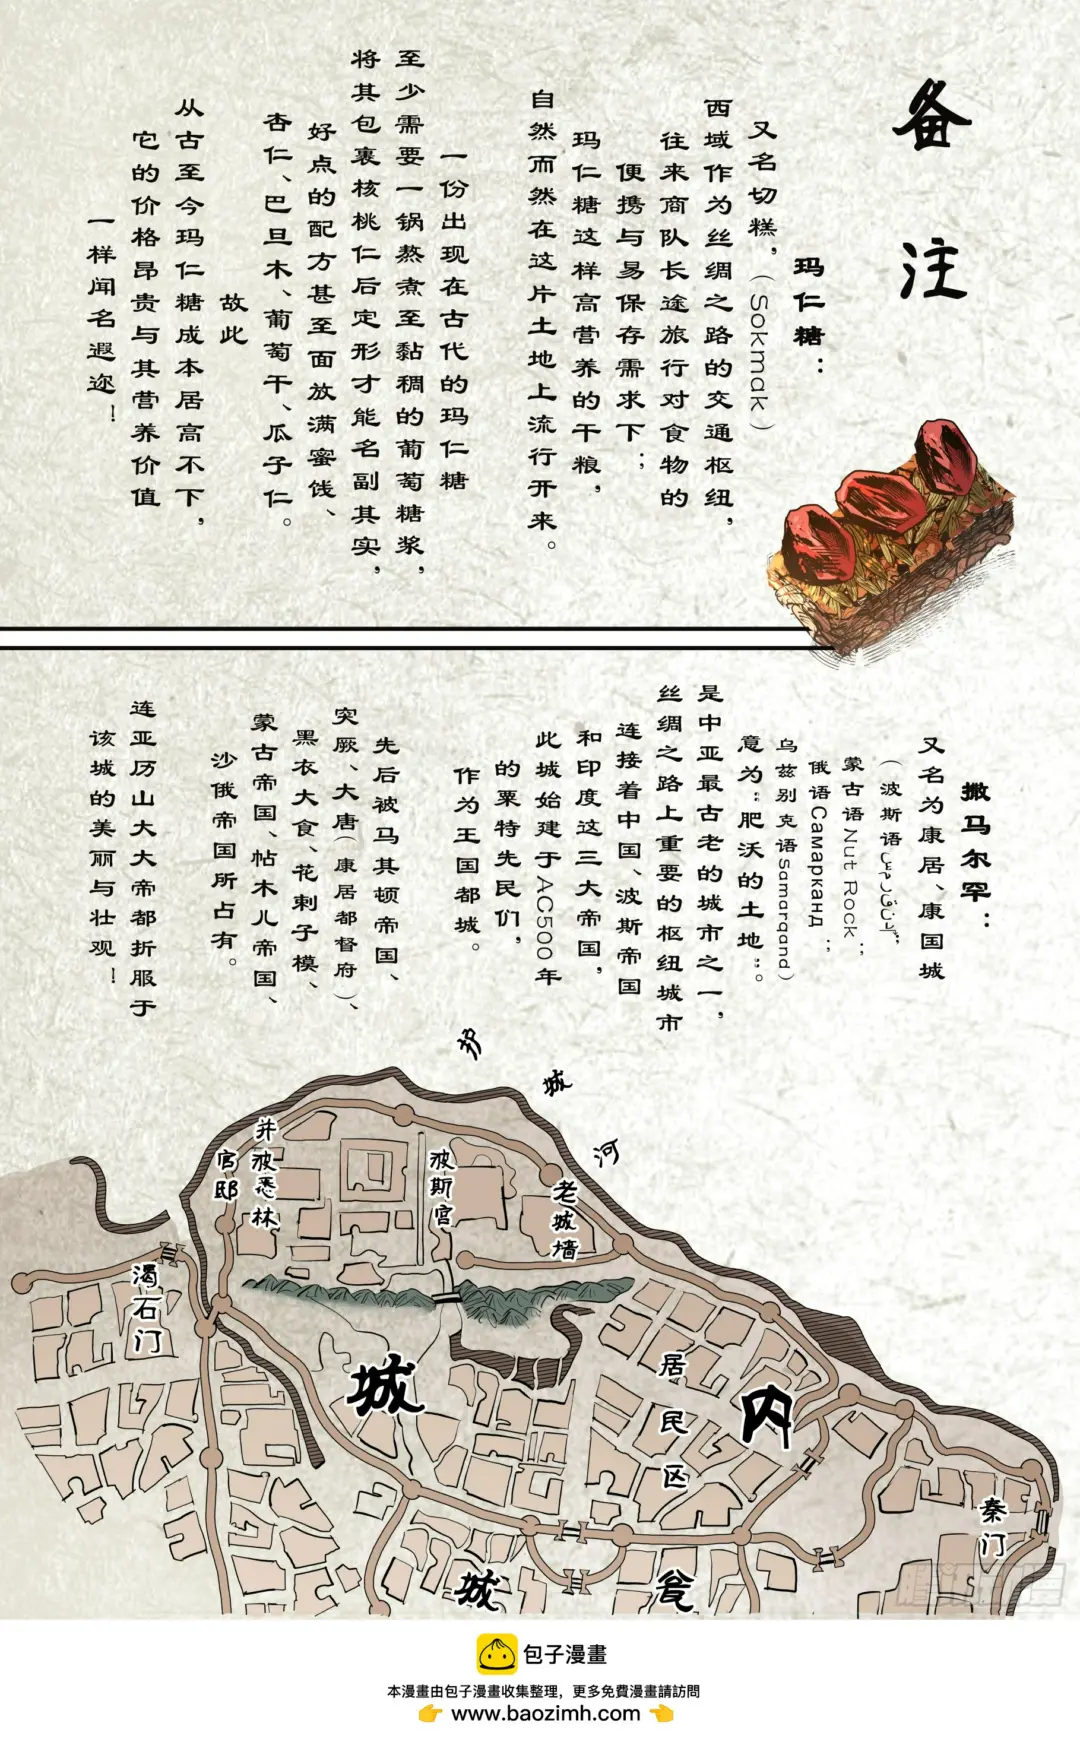 备注
玛仁糖：
又名切糕，（Sokmak）
西域作为丝绸之路的交通枢纽，
往来商队长途旅行对食物的
便携与易保存需求下；
玛仁糖这样高营养的干粮，
自然而然在这片土地上流行开来。
一份出现在古代的玛仁糖
至少需要一锅熬煮至黏稠的葡萄糖浆，
将其包裹核桃仁后定形才能名副其实，
好点的配方甚至面放满蜜饯、
杏仁、巴旦木、葡萄干、瓜子仁。
故此
从古至今玛仁糖成本居高不下，
它的价格昂贵与其营养价值
一样闻名遐迩！
撒马尔罕：
又名为康居、康国城
（波斯语
蒙古语Nut Rock；
俄语Самарканд；
乌兹别克语Samarqand）
意为“肥沃的土地”。
是中亚最古老的城市之一，
丝绸之路上重要的枢纽城市
连接着中国、波斯帝国
和印度这三大帝国，
此城始建于AC500年
的粟特先民们，
作为王国都城。
先后被马其顿帝国、
突厥、大唐（康居都督府）、
黑衣大食、花剌子模、
蒙古帝国、帖木儿帝国、
沙俄帝国所占有。
连亚历山大大帝都折服于
该城的美丽与壮观！
护城河
井被悉林
官邸
波斯宫
老城墙
渴石门
内城
居民区
秦门
瓮城
包子漫畫
本漫畫由包子漫畫收集整理，更多免費漫畫請訪問
👉 www.baozimh.com 👈